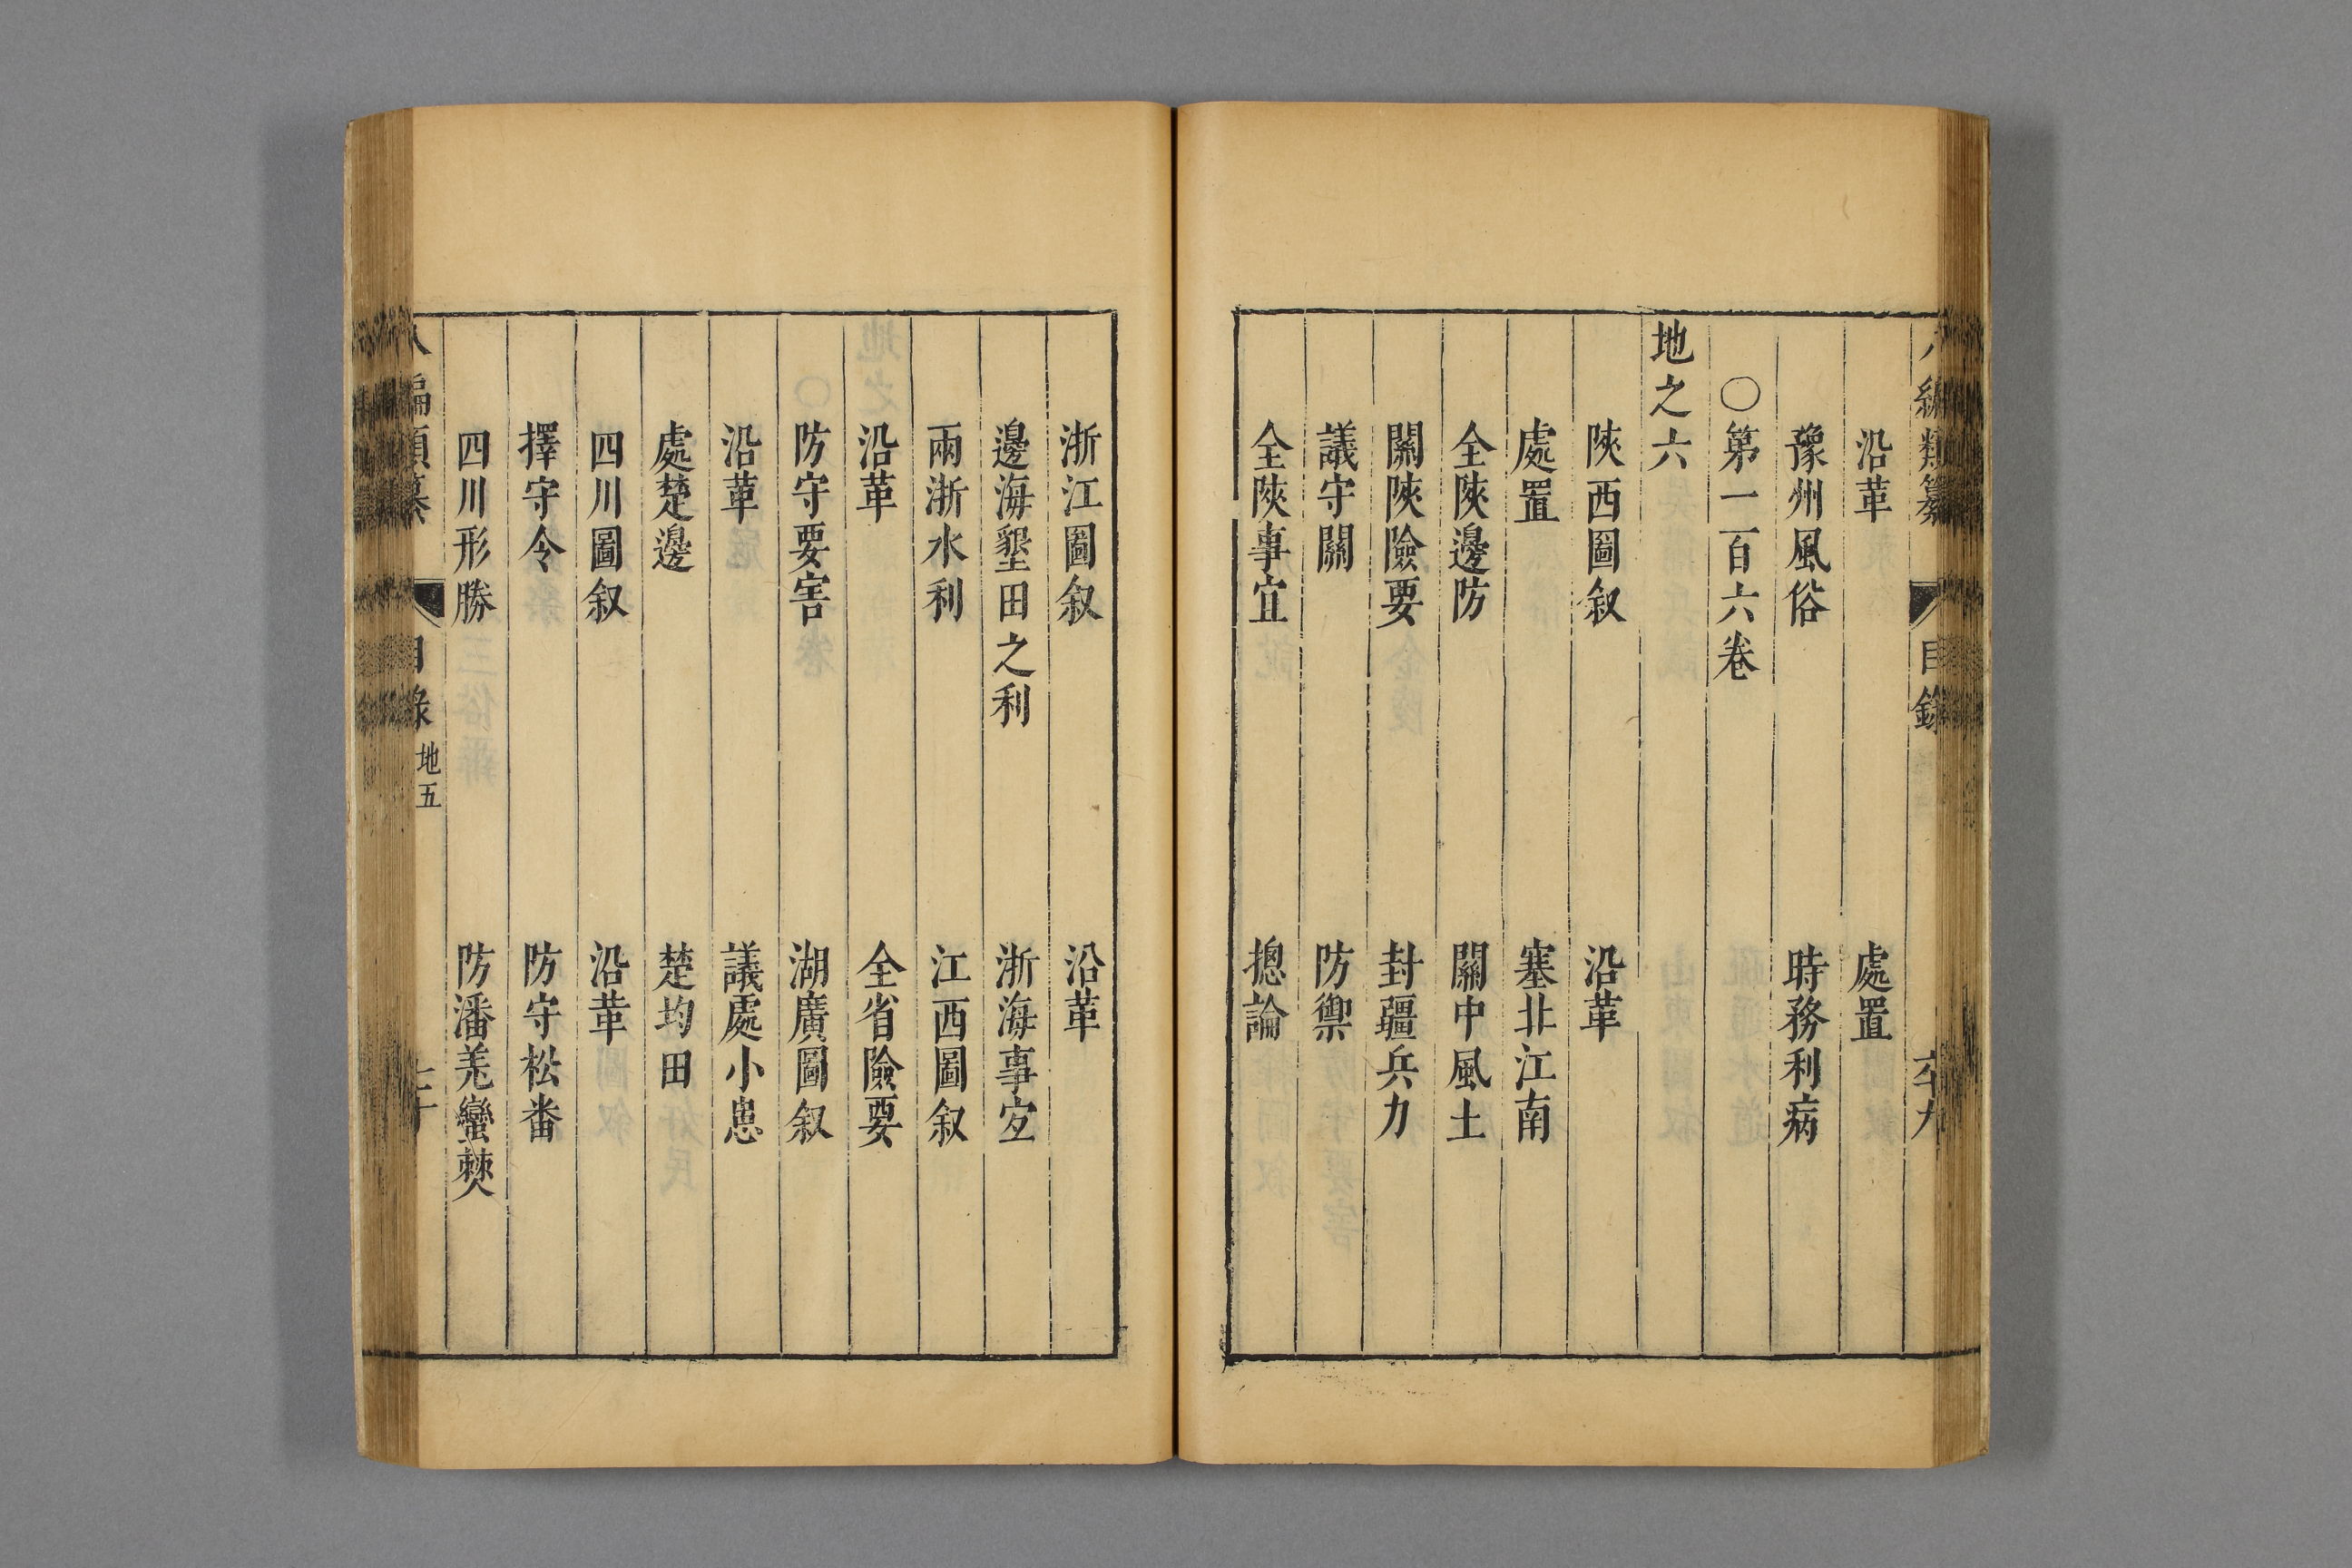 沿革 處置
豫州風俗 時務利病
〇第一百六卷
地之六
陝西圖叙 沿革
處置 塞北江南
全陝邊防 關中風土
關陝險要 封疆兵力
議守關 防禦
全陝事宜 摠論
浙江圖叙 沿革
邊海墾田之利 浙海事宐
兩浙水利 江西圖叙
沿革 全省險要
防守要害 湖廣圖叙
沿革 議處小患
處楚邊 楚均田
四川圖叙 沿革
擇守令 防守松畨
四川形勝 防潘羗蠻僰
八編類纂 目錄 地五